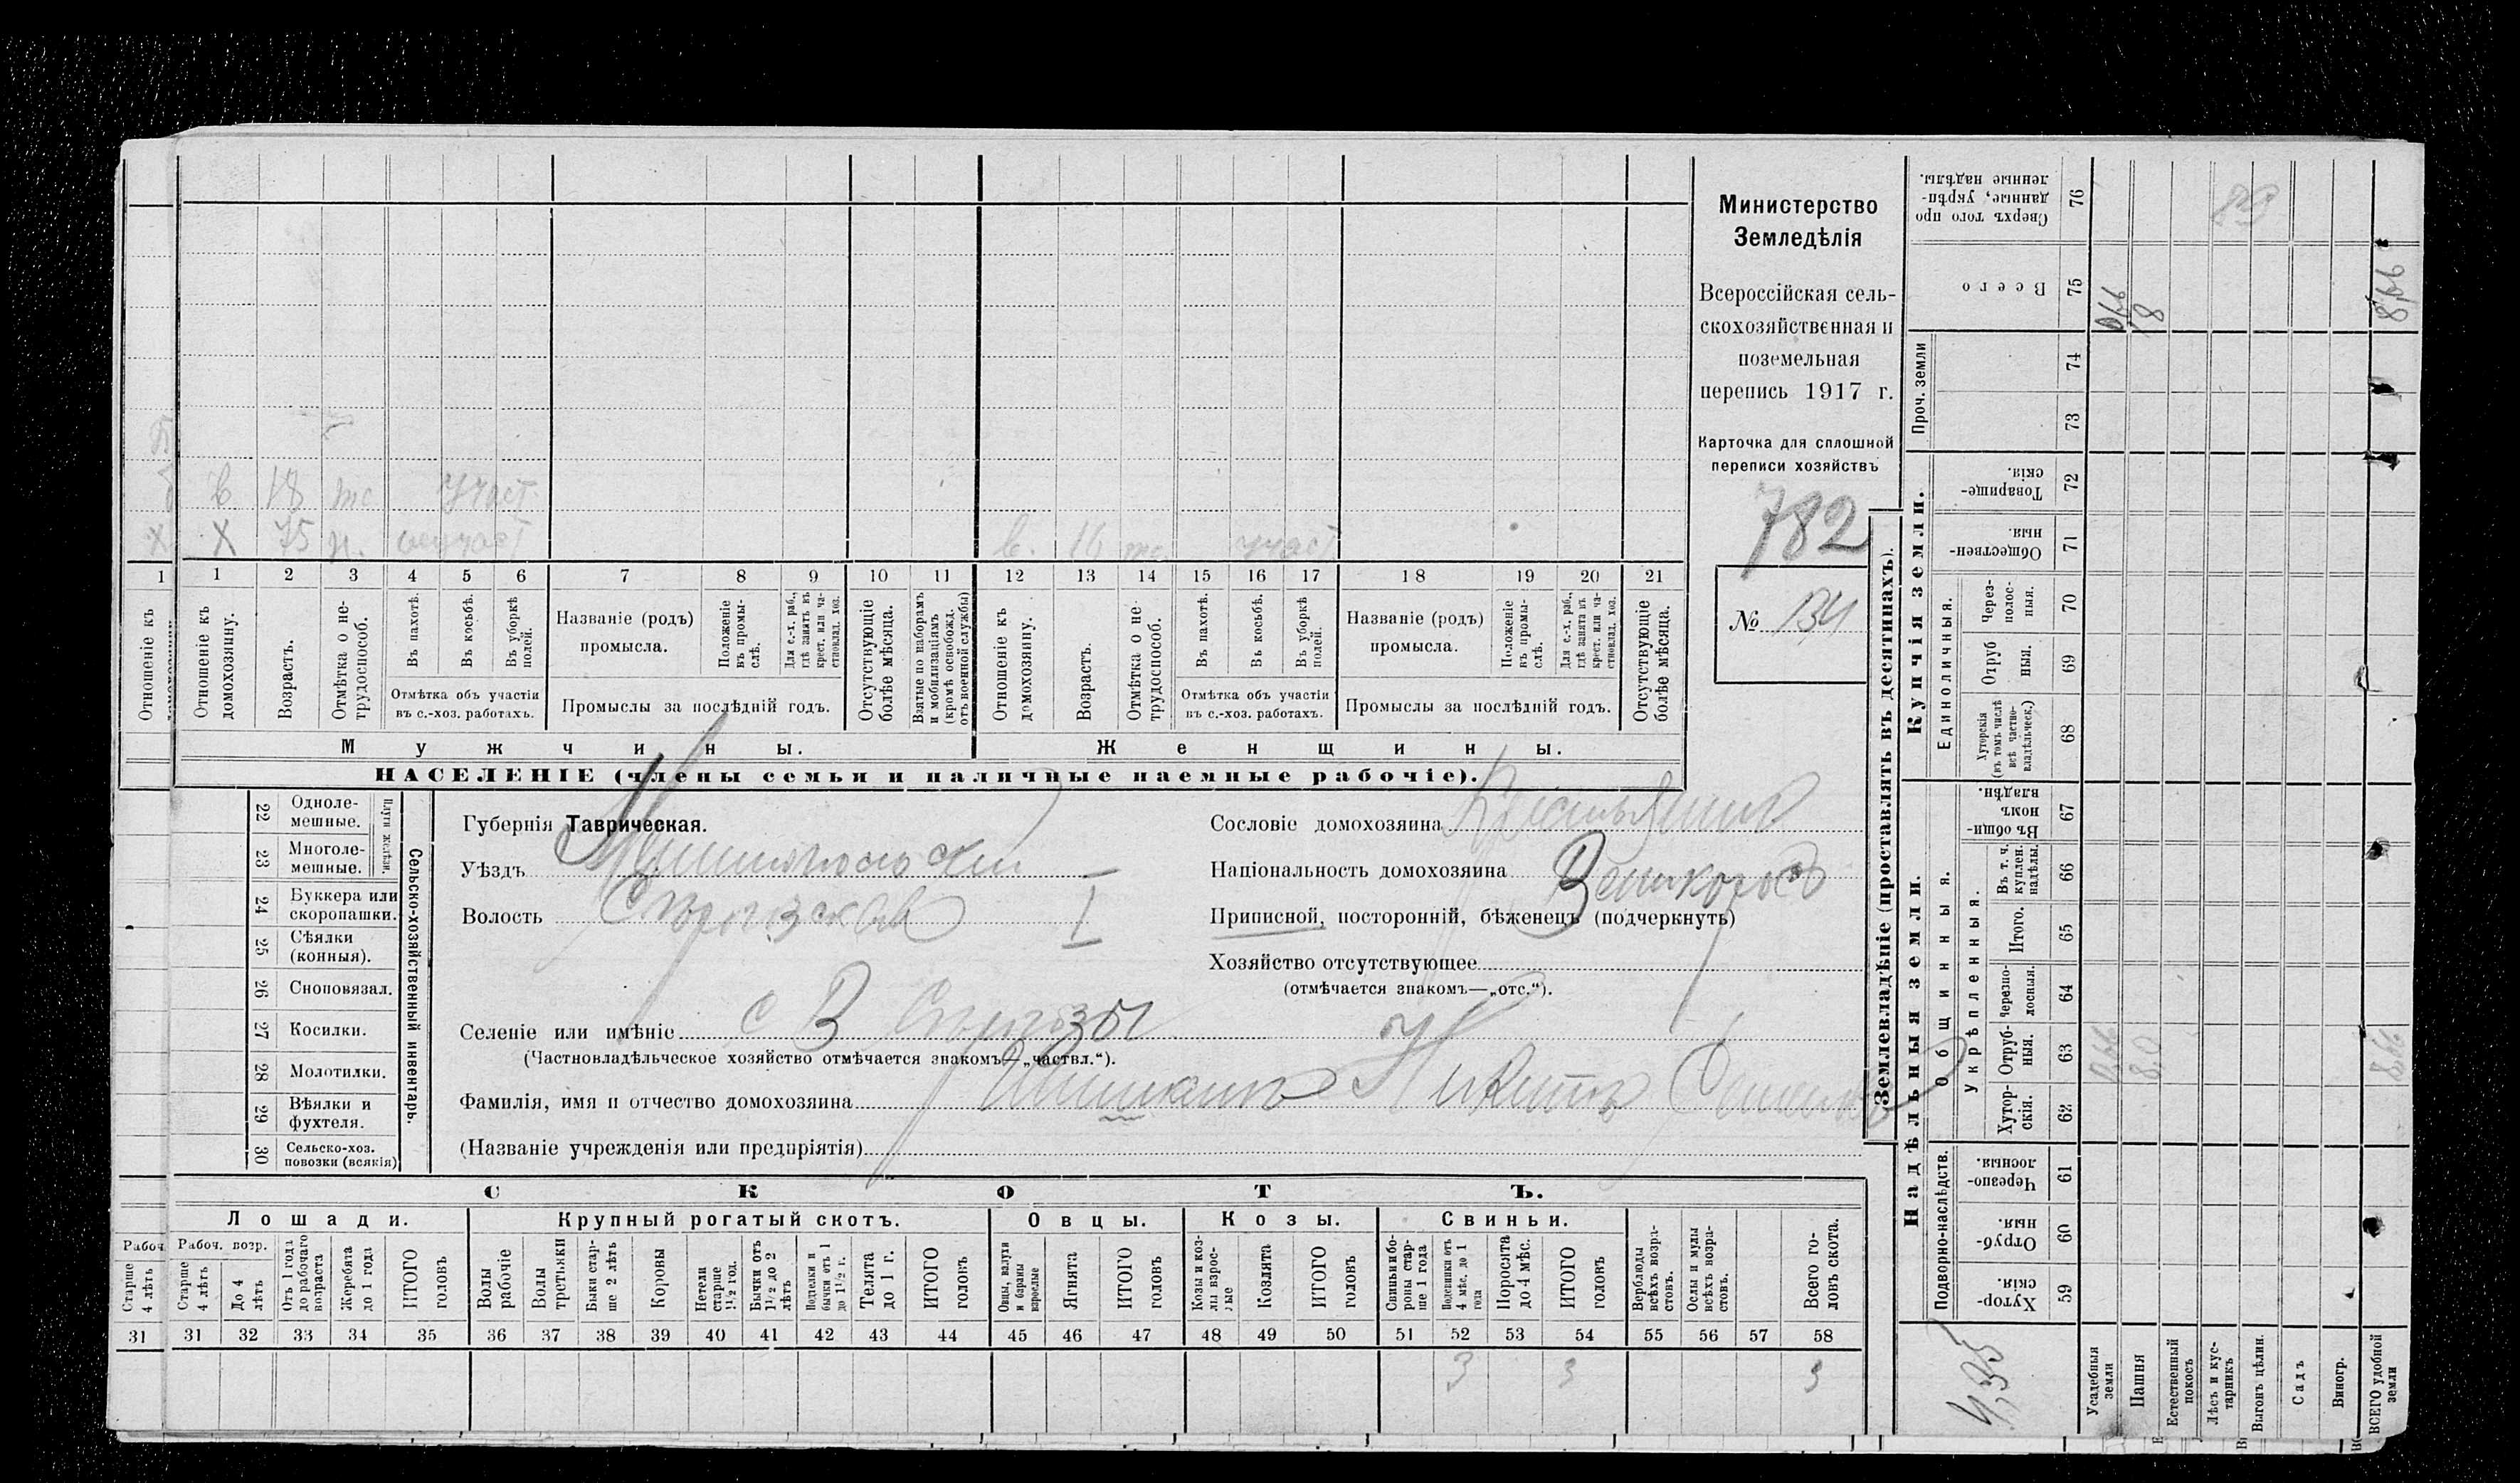 Министерство
Земледѣлія
Всероссійская сель-
скохозяйственная и
поземельная
перепись 1917 г.
Карточка для сплошной
переписи хозяйствъ
782
№ 134
в. 18 участ
Х Х 75 н. неучаст в. 16 участ
1 1 2 3 4 5 6 7 8 9 10 11 12 13 14 15 16 17 18 19 20 21
Отношеніе къ
Отношеніе къ домохозяину.
Возрастъ.
Отмѣтка о не-трудоспособ.
Въ пахотѣ.
Въ косьбѣ.
Въ уборкѣ полей.
Отмѣтка объ участіи
въ с.-хоз. работахъ.
Названіе (родъ)
промысла.
Положеніе въ промы-слѣ.
Для с.-х. раб., гдѣ занятъ въ крест. или ча-стновлад. хоз.
Промыслы за послѣдній годъ.
Отсутствующіе болѣе мѣсяца.
Взятые по наборамъ и мобилизаціямъ (кромѣ освобожд. отъ военной службы)
Отношеніе къ домохозяину.
Возрастъ.
Отмѣтка о не-трудоспособ.
Въ пахотѣ.
Въ косьбѣ.
Въ уборкѣ полей.
Отмѣтка объ участіи
въ с.-хоз. работахъ.
Названіе (родъ)
промысла.
Положеніе въ промы-слѣ.
Для с.-х. раб., гдѣ занята въ крест. или ча-стновлад. хоз.
Промыслы за послѣдній годъ.
Отсутствующіе болѣе мѣсяца.
Мужчины.
Женщины.
НАСЕЛЕНІЕ (члены семьи и наличные наемные рабочіе).
22 Одноле-мешные.
23 Многоле-мешные.
Плуги желѣзн.
24 Буккера или скоропашки.
25 Сѣялки (конныя).
26 Сноповязал.
27 Косилки.
28 Молотилки.
29 Вѣялки и фухтеля.
30 Сельско-хоз. повозки (всякія)
Сельско-хозяйственный инвентарь.
Губернія Таврическая.
Уѣздъ Мелитопольскій
Волость I
Селеніе или имѣніе с В
(Частновладѣльческое хозяйство отмѣчается знакомъ—„частвл.“).
Фамилія, имя и отчество домохозяина Никита
(Названіе учрежденія или предпріятія)
Сословіе домохозяина Крестьянинъ
Національность домохозяина Великороссъ
Приписной, посторонній, бѣженецъ (подчеркнуть)
Хозяйство отсутствующее
(отмѣчается знакомъ—„отс.“).
СКОТЪ.
Лошади.
Крупный рогатый скотъ.
Овцы.
Козы.
Свиньи.
Рабоч
Рабоч. возр.
Старше 4 лѣтъ
Старше 4 лѣтъ
До 4 лѣтъ
Отъ 1 года до рабочаго возраста
Жеребята до 1 года
ИТОГО головъ
Волы рабочіе
Волы третьяки
Быки стар-ше 2 лѣтъ
Коровы
Нетели старше 1½ год.
Бычки отъ 1½ до 2 лѣтъ
Подтелки и бычки отъ 1 до 1½ г.
Телята до 1 г.
ИТОГО головъ
Овцы, валухи и бараны взрослые
Ягнята
ИТОГО головъ
Козы и коз-лы взрос-лые
Козлята
ИТОГО головъ
Свиньи и бо-ровы стар-ше 1 года
Подсвинки отъ 4 мѣс. до 1 года
Поросята до 4 мѣс.
ИТОГО головъ
Верблюды всѣхъ возра-стовъ.
Ослы и мулы всѣхъ возра-стовъ.
Всего го-ловъ скота.
31 31 32 33 34 35 36 37 38 39 40 41 42 43 44 45 46 47 48 49 50 51 52 53 54 55 56 57 58
3 3 3
Землевладѣніе (проставлять въ десятинахъ).
Надѣльныя земли.
Купчія земли.
Проч. земли
Подворно-наслѣдств.
Общинныя.
Укрѣпленныя.
Единоличныя.
Хутор-скія. 59
Отруб-ныя. 60
Черезпо-лосныя. 61
Хутор-скія. 62
Отруб-ныя. 63
Черезпо-лосныя. 64
Итого. 65
Въ т. ч. куплен. надѣлы. 66
Въ общи-номъ владѣн. 67
Хуторскія (въ томъ числѣ всѣ частно-владѣльческ.) 68
Отруб ныя. 69
Через-полос-ныя. 70
Обществен-ныя. 71
Товарище-скія. 72
73
74
Всего 75
Сверхъ того про данные, укрѣп-ленные надѣлы. 76
4,35
Усадебныя земли 0,66 0,66
Пашня 8,0 8
Естественный покосъ
Лѣсъ и кус-тарникъ
Выгонъ цѣлин.
Садъ
Виногр.
ВСЕГО удобной земли 8,66 8,66